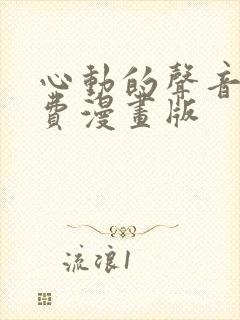 心動的聲音
費漫畫版
流浪1